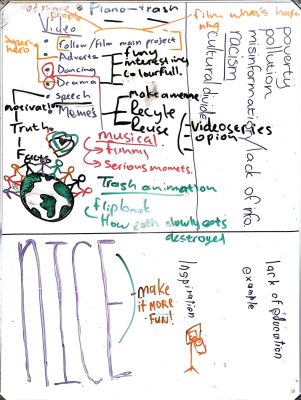 Piano-trash
film what's happe
ning
Super-
hero
Video
follow/film main project
Adverts
funny
interesting
colourfull.
Dancing
Drama
Speech
Memes
Make a meme
Recycle
Reuse
motivation
Truth
Facts
musical
funny
Serious moments.
Videoseries
opion
poverty
pollution
misinformation/lack of info.
racism
cultural divide
Trash animation
flipbook
How earth slowly gets
destroyed
NICE
make
it MORE
FUN!
Inspiration
example
lack of education